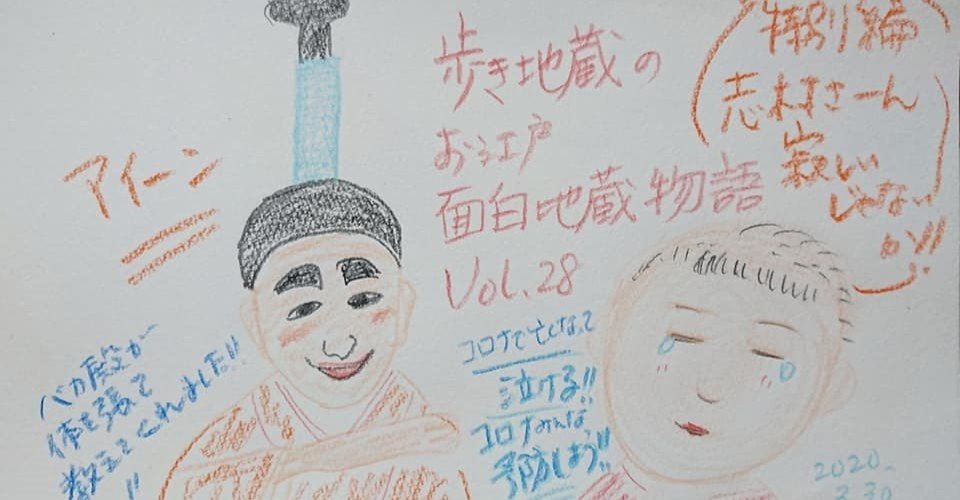 歩き地蔵の
お江戸
面白地蔵物語
Vol.28
特別編
志村さーん
寂しい
じゃない
か!!
アイーン
バカ殿が
体を張って
教えてくれました!!
コロナで亡くなって
泣ける!!
コロナみんな、
予防しよう!!
2020.
3.30